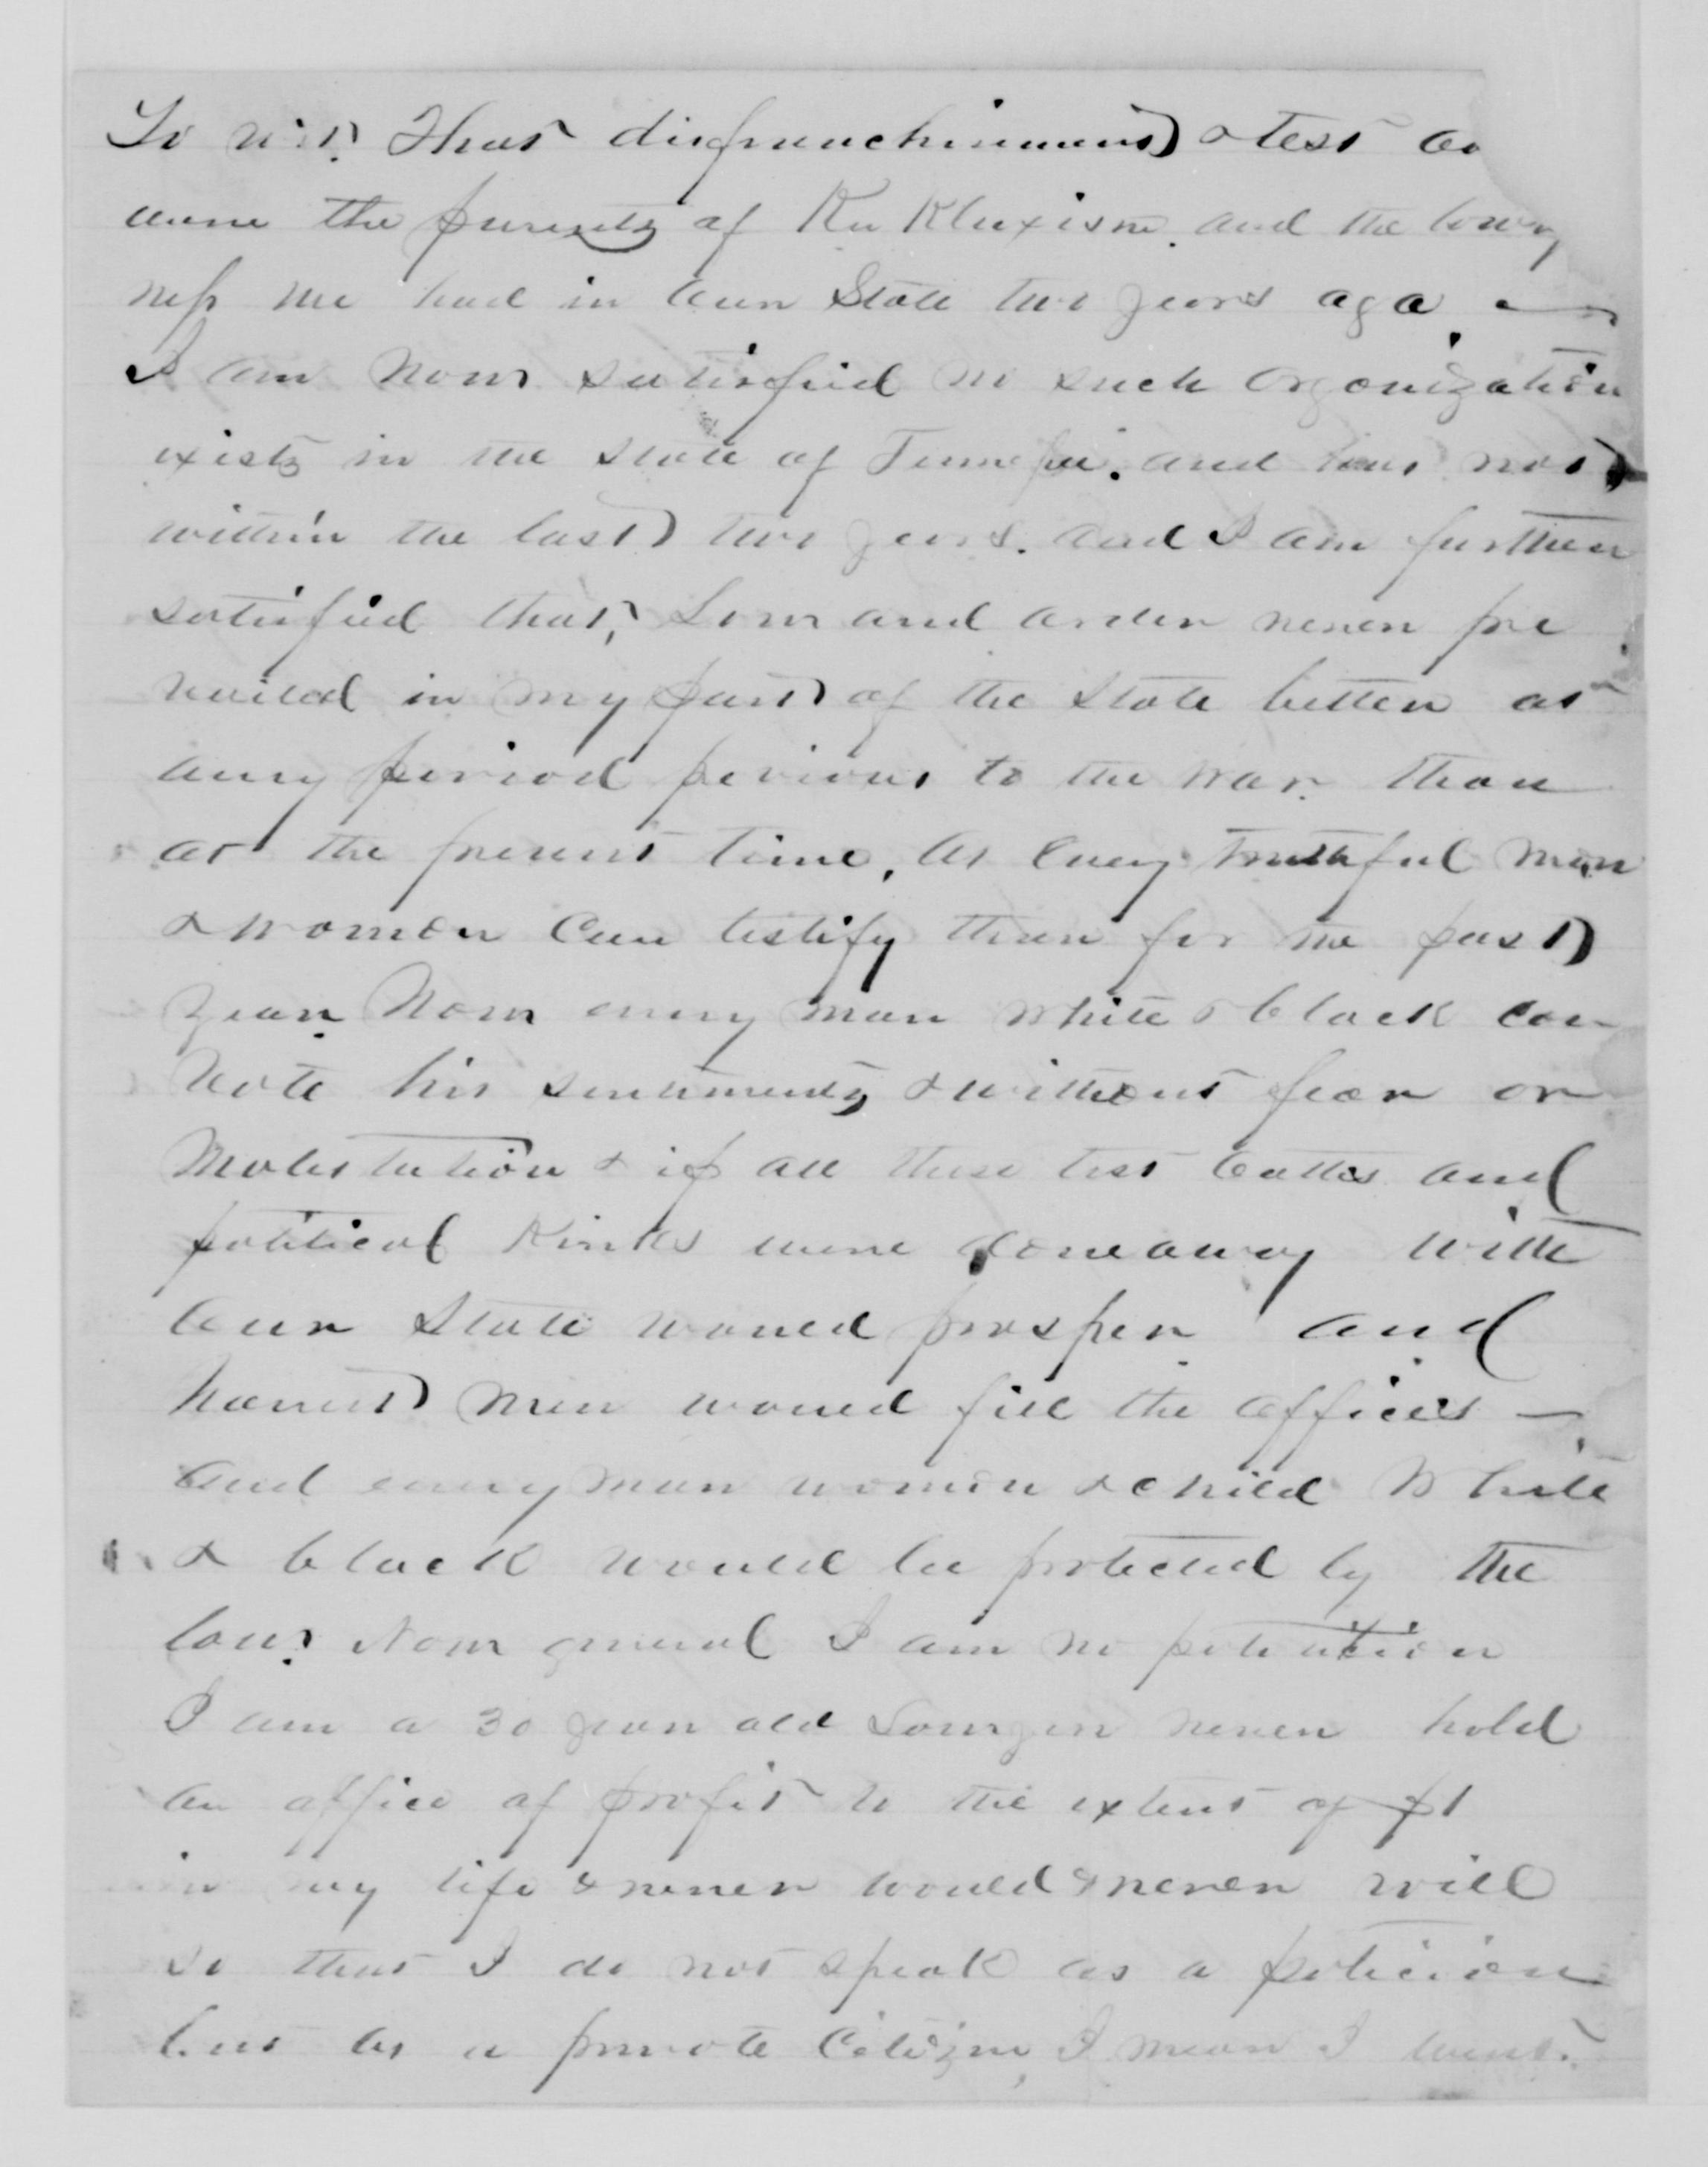 To wit. That disfranchisement & test oa
were the parents of Ku Kluxism. and the
ness we had in our State two years ago —
I am now satisfied no such organization
exists in the state of Tennessee. and has not
within the last two years. and I am further
satisfied that, Law and order never pre
vailed in my part of the State better at
any period pervious to the war. than
at the present time, as every truthful man
& women can testify than for the past
year. Now every man white & black can
vote his sentiments & without fear or
molestation & if all these test oathes and
political kinks were done away with
our State would prosper and
honest men would fill the offices —
and every man women & child White
& black would be protected by the
law. Now general I am no politician
I am a 30 year old Lawyer never held
an office of profit to the extent of $1
in my life & never would & never will
so that I do not speak as a politician
but as a private Citizen, I mean I want